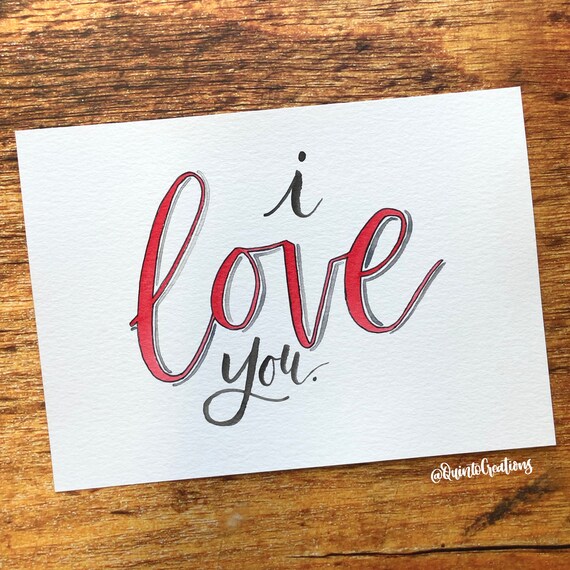 i
love
you.
@QuintoCreations